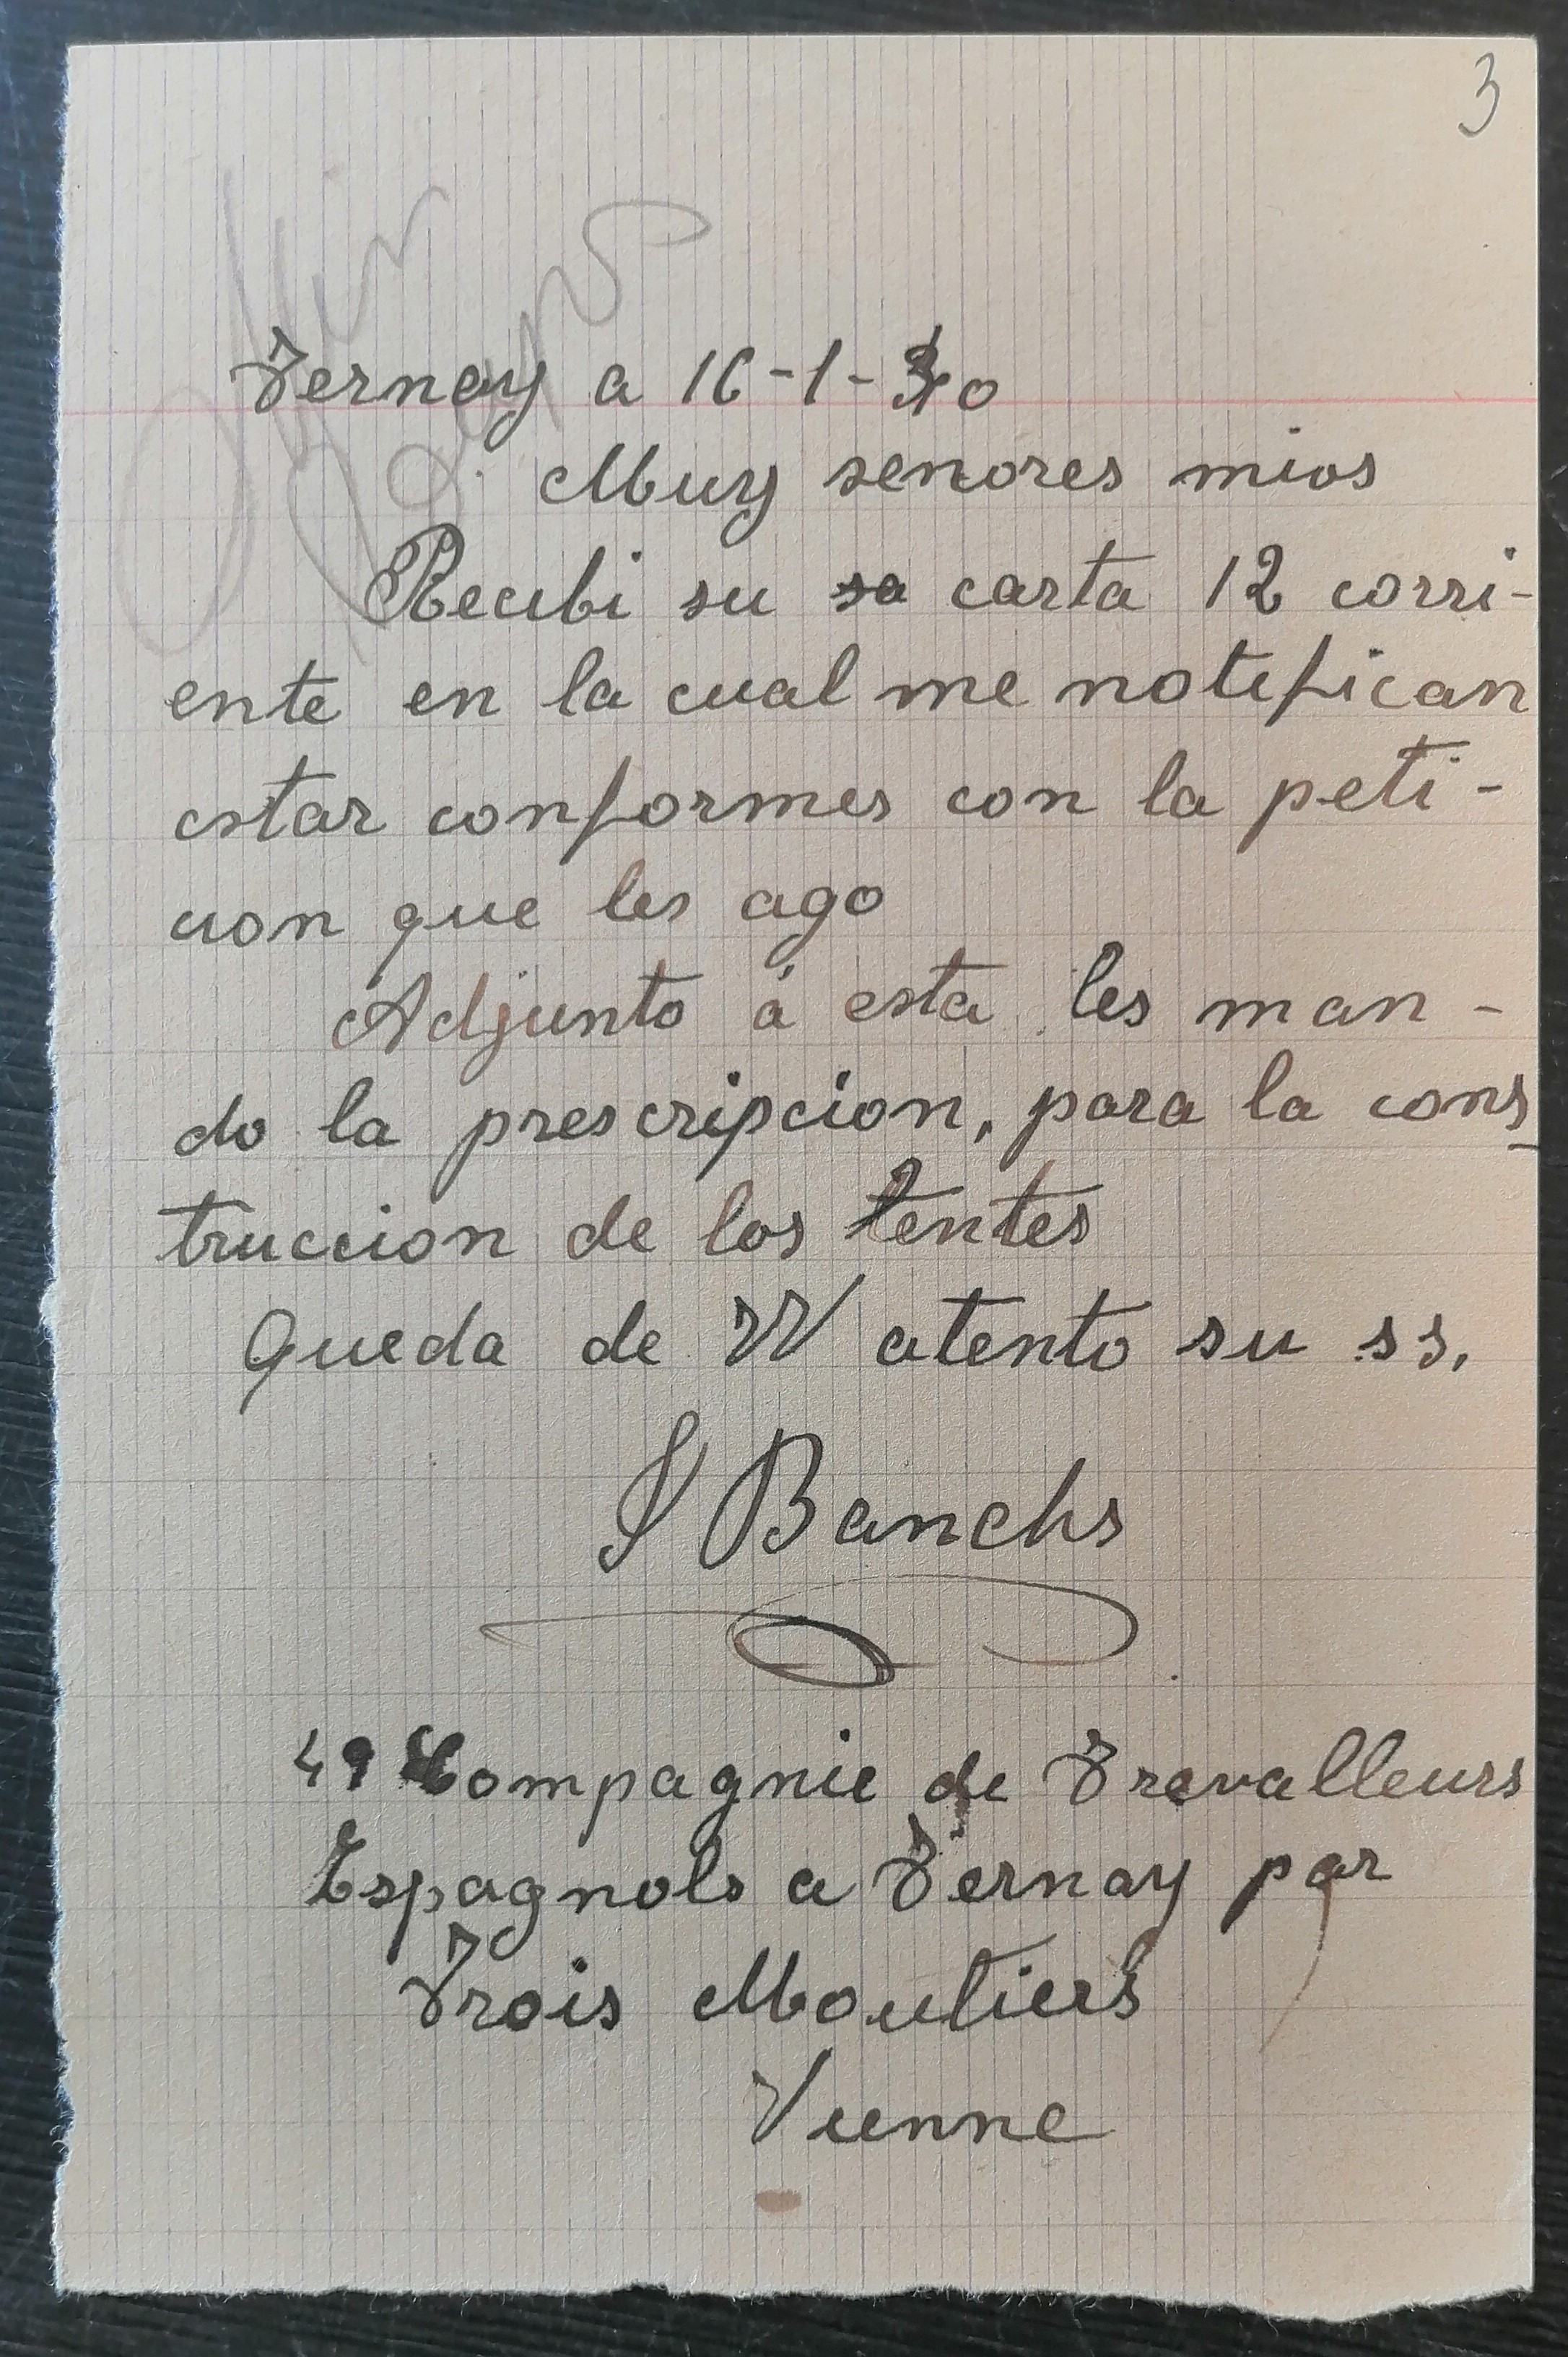 3
Ternay a 16-1-40
Muy senores mios
Recibi su sa carta 12 corri-
ente en la cual me notifican
estar conformes con la peti-
cion que les ago
Adjunto á esta les man-
do la prescripcion, para la cons
truccion de los lentes
Queda de VV atento su ss,
S Banchs
49 Compagnie de Travalleurs
Espagnols a Ternay par
Trois Moutiers
Vienne